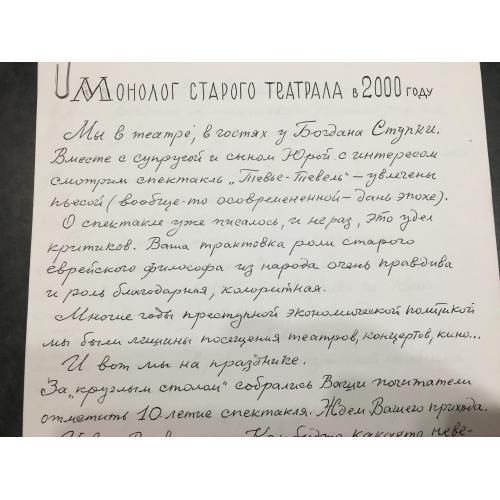 Монолог старого театрала в 2000 году
Мы в театре, в гостях у Богдана Ступки.
Вместе с супругой и сыном Юрой с интересом
смотрим спектакль „Тевье-Тевель“ – увлечены
пьесой (вообще-то осовремененной – дань эпохе).
О спектакле уже писалось, и не раз, это удел
критиков. Ваша трактовка роли старого
еврейского философа из народа очень правдива
и роль благодарная, колоритная.
Многие годы преступной экономической политикой
мы были лишины посещения театров, концертов, кино...
И вот мы на празднике.
За „круглым столом“ собрались Ваши почитатели
отметить 10 летие спектакля. Ждем Вашего прихода.
какает неве-